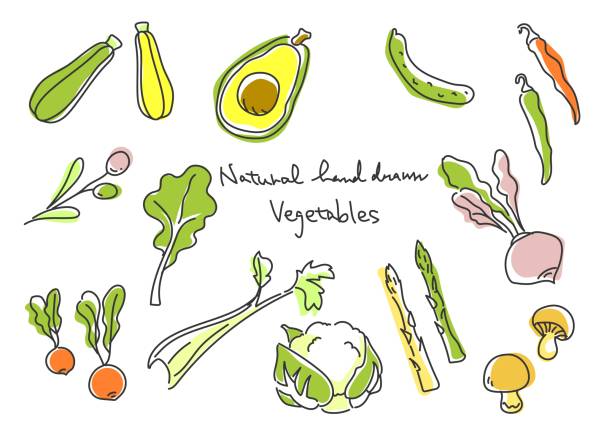 Natural hand drawn
Vegetables